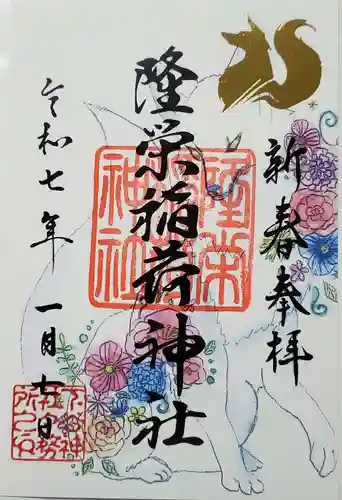 新春奉拝
隆栄稲荷神社
令和七年 一月十七日
隆栄稲荷神社